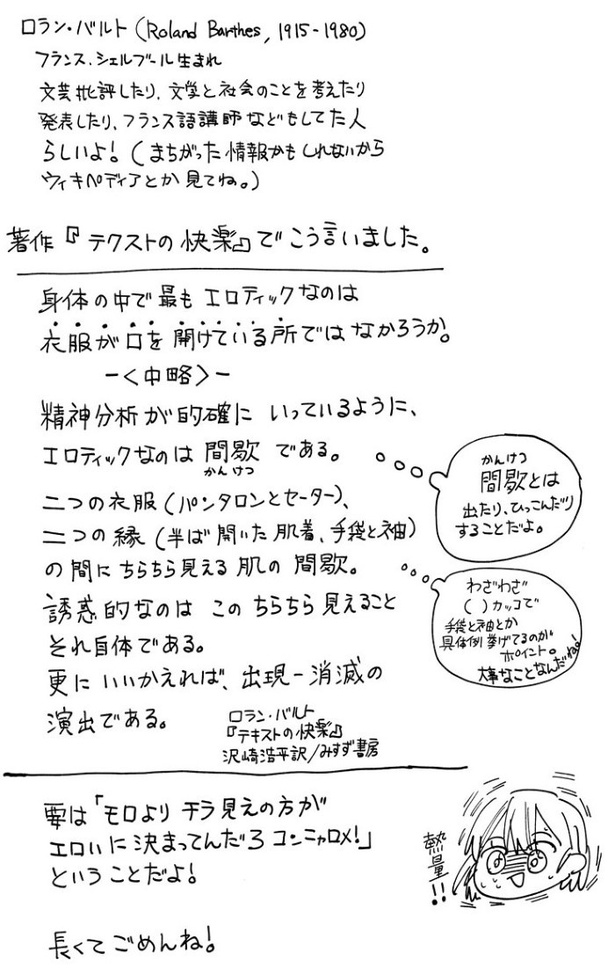 ロラン・バルト (Roland Barthes, 1915-1980)
フランス.シェルブール生まれ
文芸批評したり、文学と社会のことを考えたり
発表したり、フランス語講師などもしてた人
らしいよ！(まちがった情報かもしれないから
ウィキペディアとか見てね。)
著作『テクストの快楽』でこう言いました。
身体の中で最もエロティックなのは
衣服が口を開けている所ではなかろうか。
ー<中略>ー
精神分析が的確にいっているように、
エロティックなのは間歇である。
かんけつ
二つの衣服(パンタロンとセーター)、
二つの縁(半ば開いた肌着、手袋と袖)
の間にちらちら見える肌の間歇。
誘惑的なのはこのちらちら見えること
それ自体である。
更にいいかえれば、出現ー消滅の
演出である。
ロラン・バルト
『テキストの快楽』
沢崎浩平訳/みすず書房
かんけつ
間歇とは
出たり、ひっこんだり
することだよ。
わざわざ
( )カッコで
手袋と袖とか
具体例挙げてるのが
ポイント。
大事なことなんだね!
要は「モロよりチラ見えの方が
エロいに決まってんだろコンニャロメ!」
ということだよ!
熱量!!
長くてごめんね!